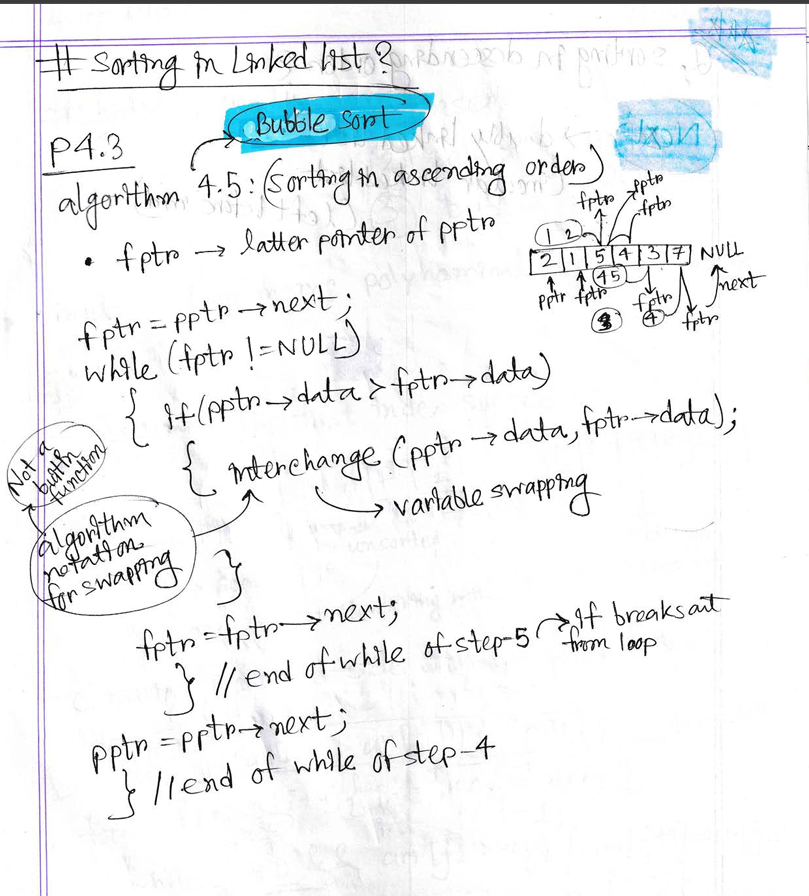 # Sorting in Linked list?
Bubble sort
P4.3
algorithm 4.5: (Sorting in ascending order)
• fptr → latter pointer of pptr
fptr pptr
fptr
1 2
2 1 5 4 3 7 NULL
4 5
pptr fptr fptr next
3 4 fptr
fptr = pptr → next;
while (fptr != NULL)
{ if (pptr → data > fptr → data)
{ interchange (pptr → data, fptr → data);
Not a
builtin
function
→ variable swapping
algorithm
notation
for swapping
}
fptr = fptr → next;
} // end of while of step-5 → if breaks out
from loop
pptr = pptr → next;
} // end of while of step-4